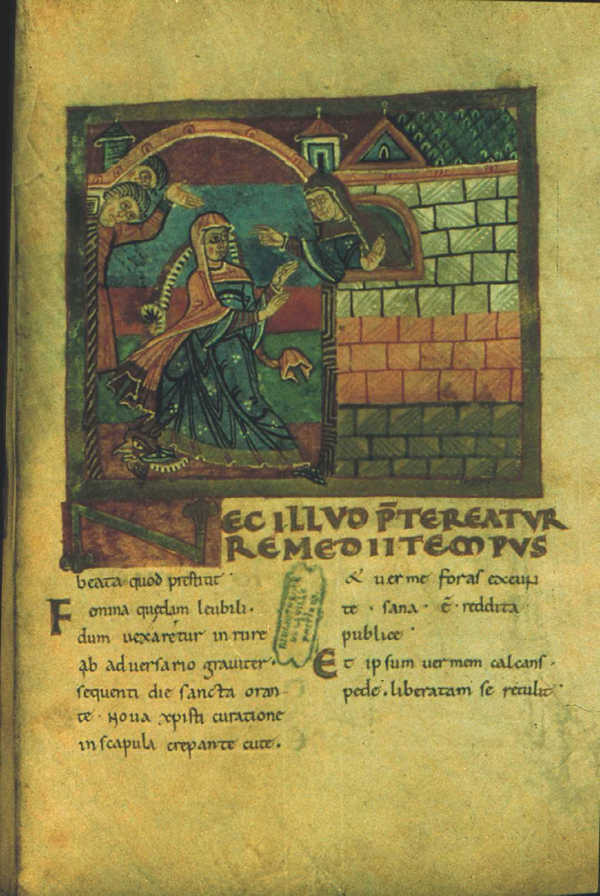 NEC ILLVD P̄TEREATVR
REMEDII TEMPVS
beata quod prestitit
Femina quędam leubili.
dum vexaretur in rure
ab adversario graviter.
sequenti die sancta oran
te. Nova xpisti curatione
in scapula crepante cute.
& verme foras exeun
te. sana. ē. reddita
publice
Et ipsum vermem calcans.
pede. liberatam se retulit